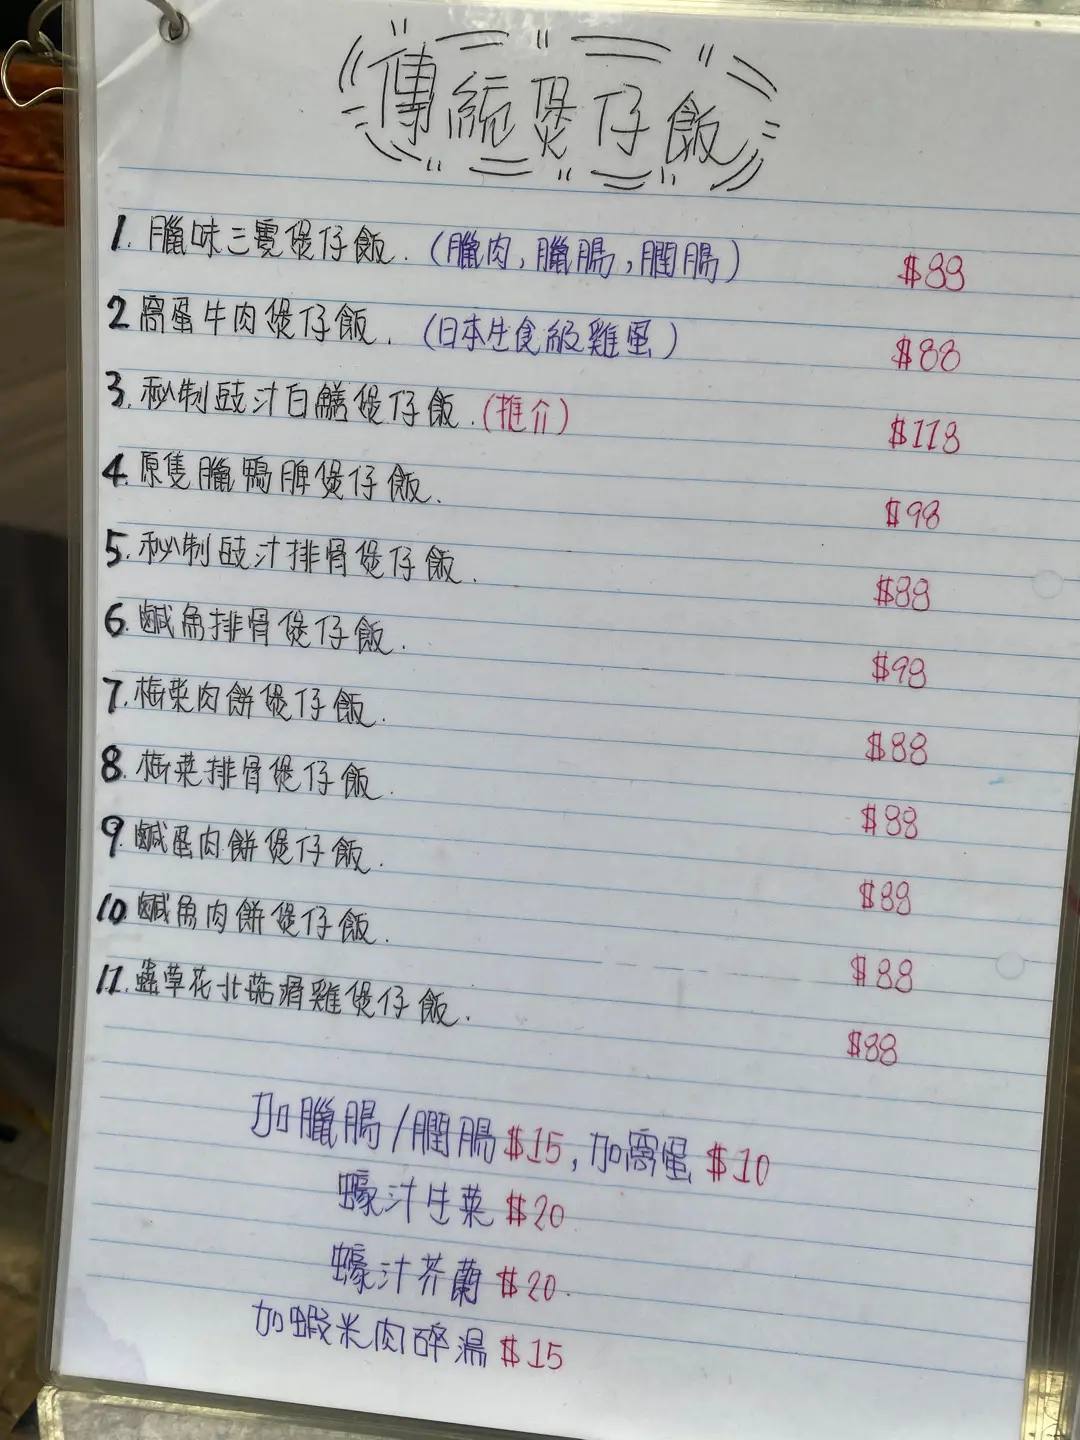 傳統煲仔飯
1. 臘味三寶煲仔飯. (臘肉, 臘腸, 膶腸) $88
2 窩蛋牛肉煲仔飯. (日本生食級雞蛋) $88
3. 秘制豉汁白鱔煲仔飯. (推介) $118
4. 原隻臘鴨脾煲仔飯. $98
5. 秘制豉汁排骨煲仔飯. $88
6. 鹹魚排骨煲仔飯. $98
7. 梅菜肉餅煲仔飯. $88
8. 梅菜排骨煲仔飯. $88
9. 鹹蛋肉餅煲仔飯. $88
10. 鹹魚肉餅煲仔飯. $88
11. 蟲草花北菇滑雞煲仔飯. $88
加臘腸/膶腸 $15, 加窩蛋 $10
蠔汁生菜 $20
蠔汁芥蘭 $20.
加蝦米肉碎湯 $15